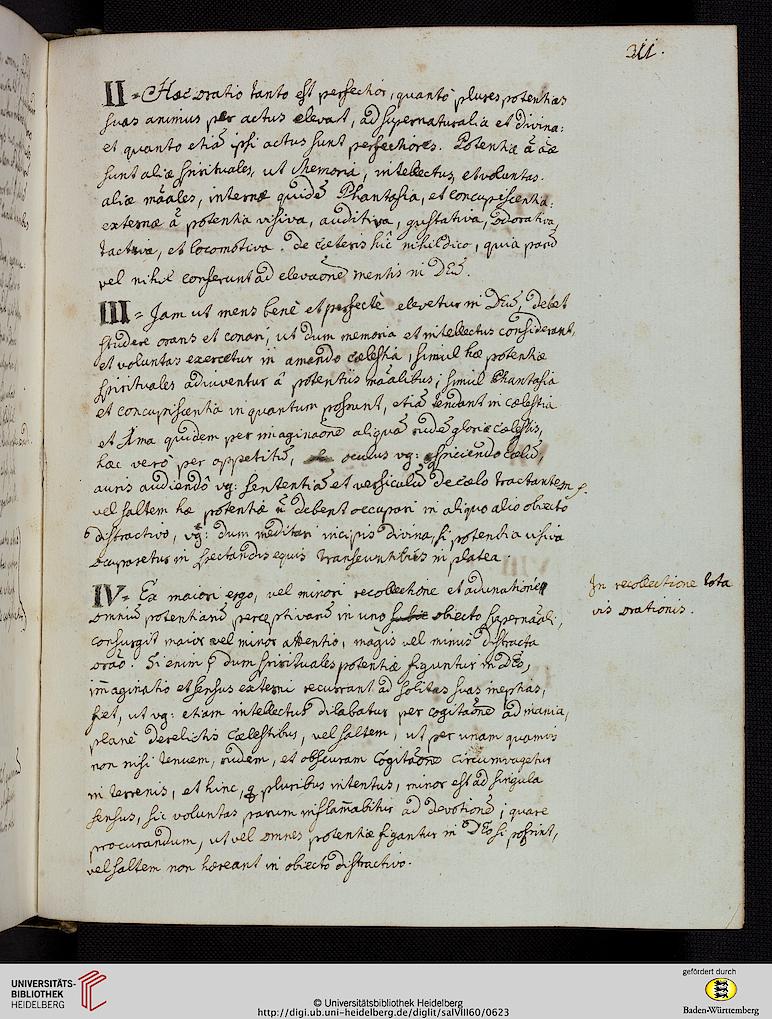 311.
II = Hæc oratio tanto est perfectior, quantò plures potentias
suas animus per actus elevat, ad supernaturalia et divina:
et quanto etiã ipsi actus sunt perfectiores. Potentiæ ã aæ
sunt aliæ spirituales, ut Memoria, intellectus, et voluntas.
aliæ mãales, internæ quidẽ Phantasia, et concupiscentia:
externæ ã potentia visiva, auditiva, gustativa, odorativa
tactiva, et locomotiva. de cæteris hîc nihil dico, quia parũ
vel nihil conferunt ad elevaõne mentis in DEũ.
III = Jam ut mens benè et perfectè elevetur in Deũ, debet
studere orans et conari, ut dum memoria et intellectus considerant,
et voluntas exercetur in amando cælestia, simul hæ potentiæ
spirituales adiuventur â potentiis mãalibus; simul Phantasia
et concupiscentia in quantum possunt, etiã tendant in cælestia
et Ima quidem per imaginaõne aliquã rudẽ gloriæ cælestis,
hæc verò per appetitũ, oculus vg: aspiciendo cælũ,
auris audiendô vg: sententiã et versiculũ de cælo tractantem
vel saltem hæ potentiæ ñ debent occupari in aliquo alio obiecto
distractivo, vg: dum meditari incipis divina, si potentia visiva
occuparetur in spectandis equis transeuntibus in platea.
IV = Ex maiori ergo, vel minori recollectione et adunatione
omniũ potentiarũ perceptivarũ in uno obiecto supernãali,
consurgit maior vel minor attentio, magis vel minus distracta
orão. Si enim dum spirituales potentiæ figuntur in DEo,
im̃aginatio et sensus externi recurrant ad solitas suas ineptias,
fiet, ut vg: etiam intellectus dilabatur per cogitaõne ad inania,
planè derelictis cælestibus, vel saltem, ut per unam quamvis
non nisi tenuem, rudem, et obscuram cogitaõne circumvagetur
in terrenis, et hinc, q pluribus intentus, minor est ad singula
sensus, sic voluntas parum inflam̃abitur ad devotionẽ; quare
procurandum, ut vel omnes potentiæ figantur in DEo si possint,
vel saltem non hæreant in obiecto distractivo.
In recollectione tota
vis orationis.
UNIVERSITÄTS-
BIBLIOTHEK
HEIDELBERG
© Universitätsbibliothek Heidelberg
http://digi.ub.uni-heidelberg.de/diglit/salVIII60/0623
gefördert durch
Baden-Württemberg